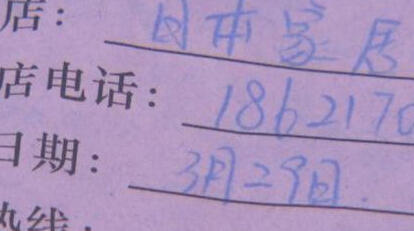 店：日本家居
店电话：1862170
日期：3月29日.
热线：